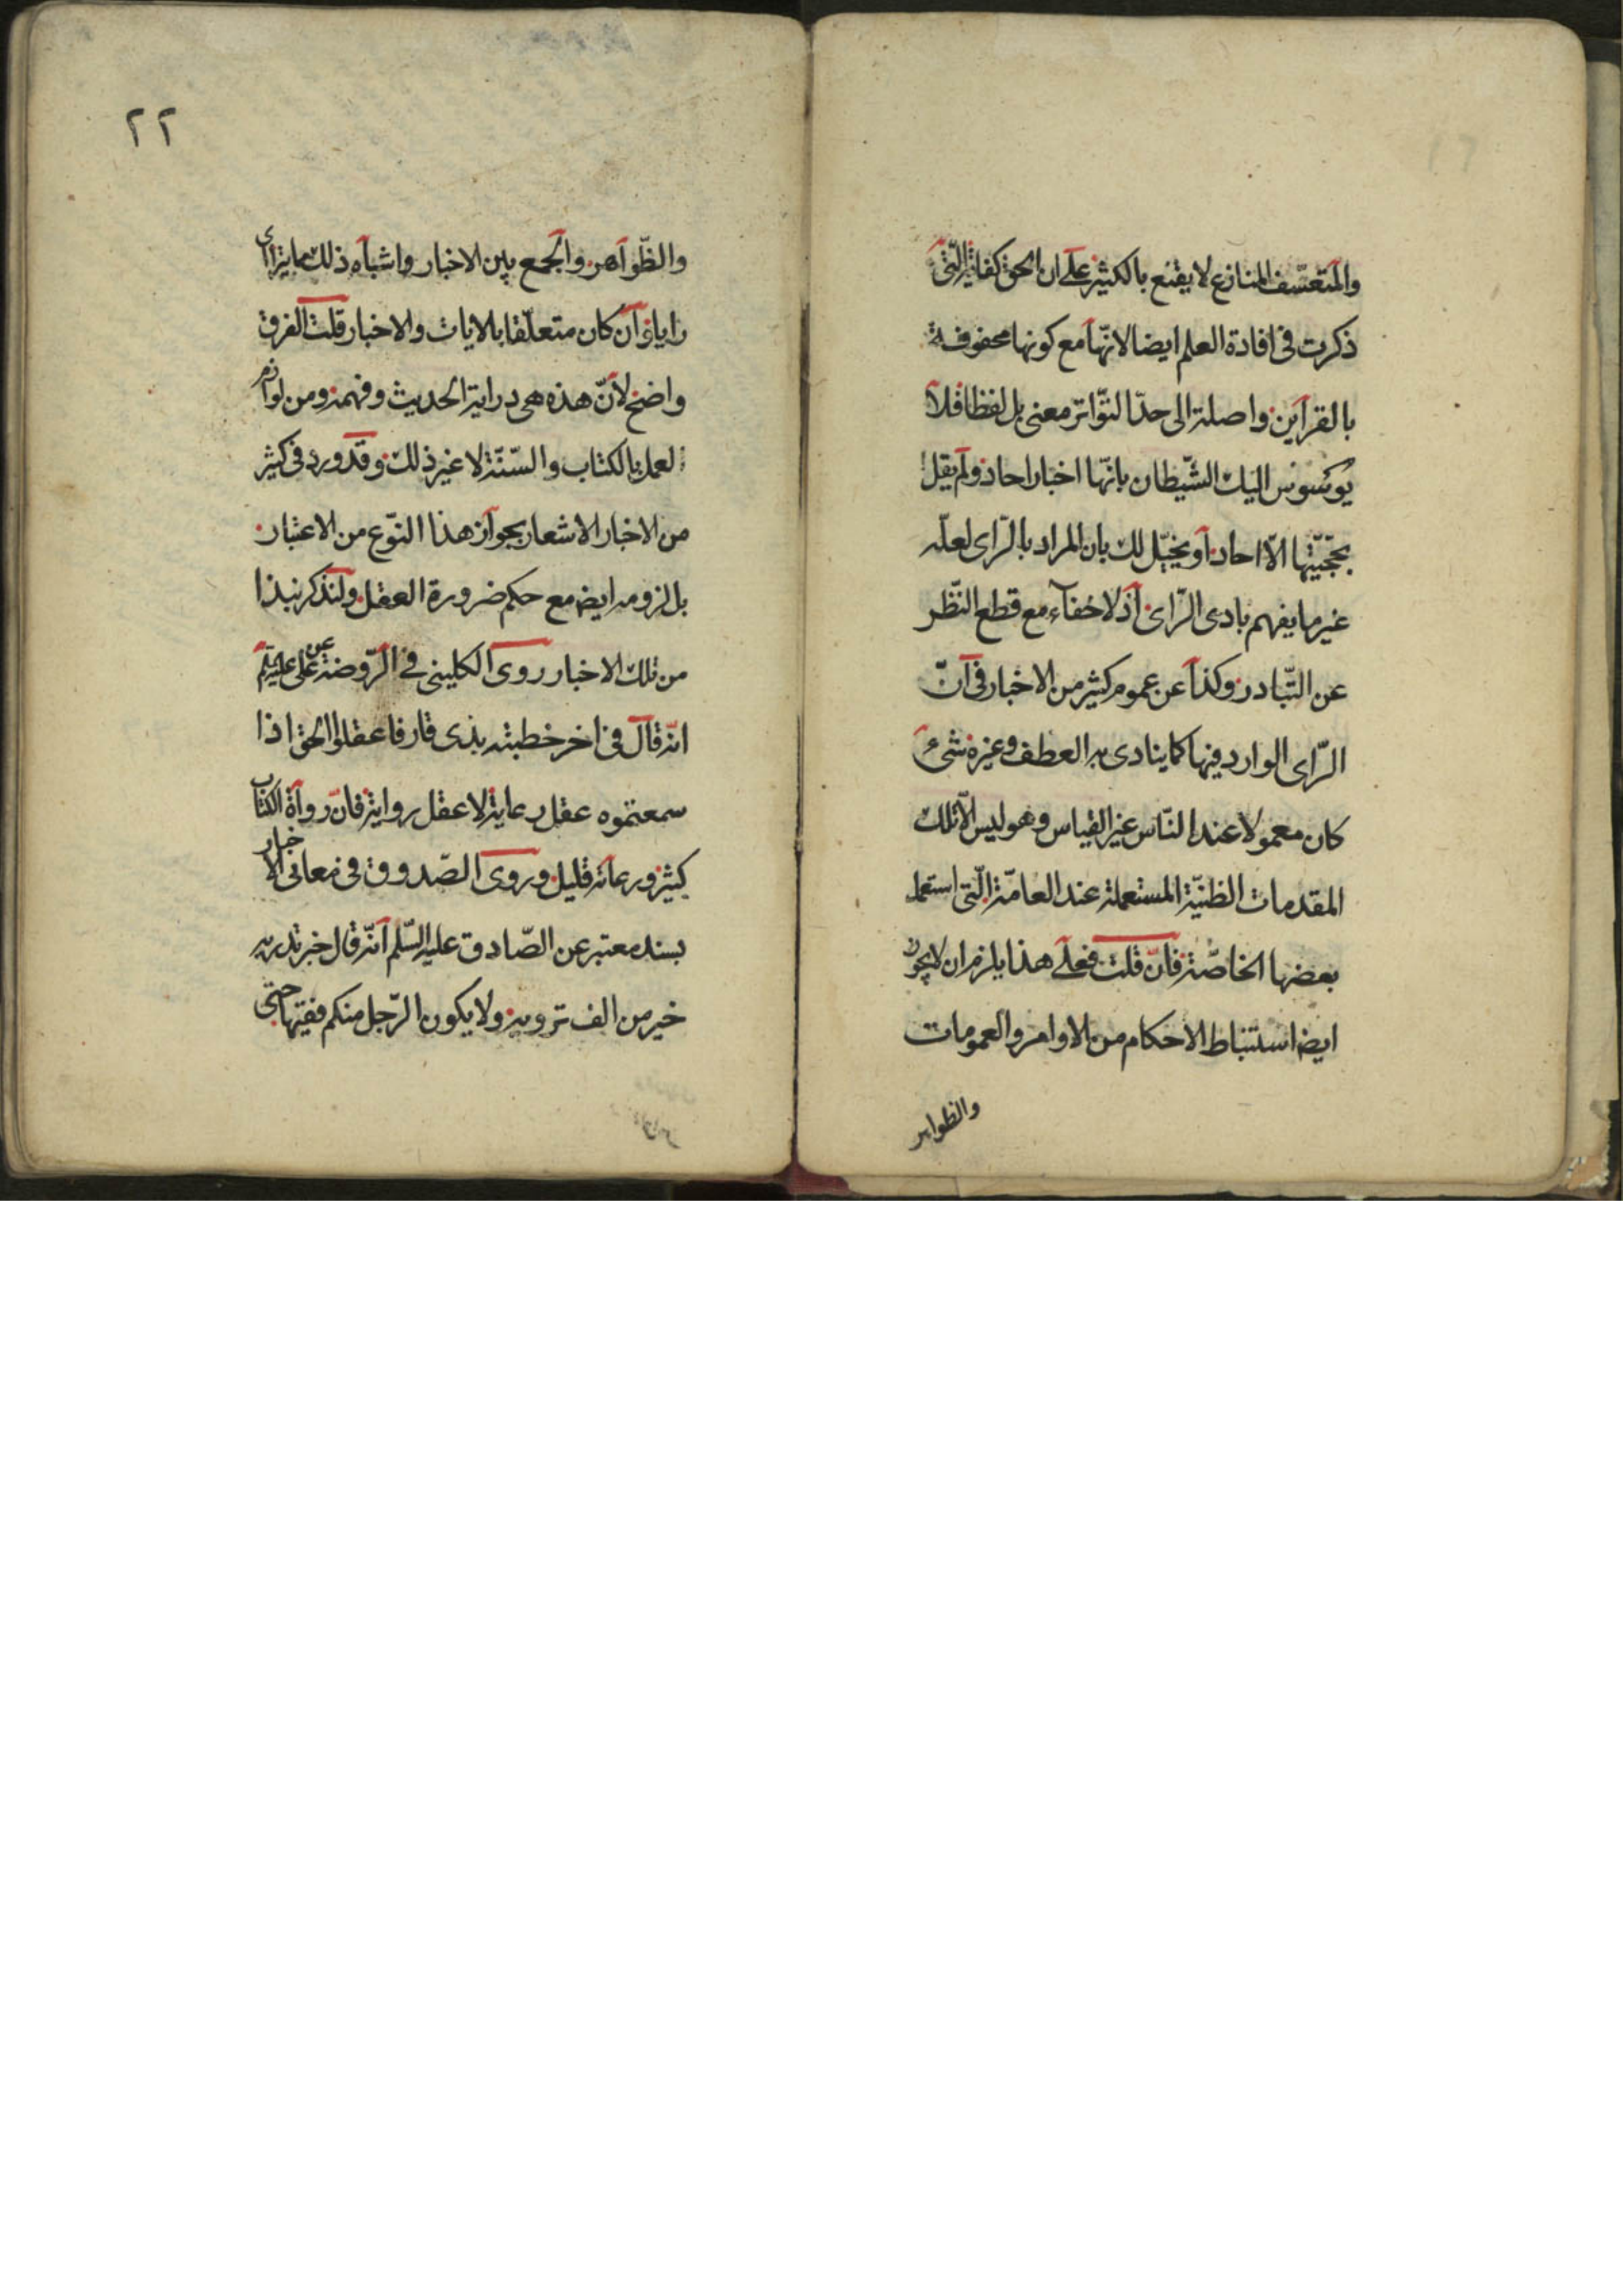 والمتعسّف المنازع لا يقنع بالكثير على ان الحق كفاية الّتى
ذكرت فى افادة العلم ايضا لانّها مع كونها محفوفة
بالقراين واصلة الى حدّ التّواتر معنى بل لفظا فلا
يوسوس اليك الشّيطان بانّها اخبار احاد ولم يقل
بحجّيّتها الّا احاد او يخيّل لك بان المراد بالرّاى لعلّه
غير ما يفهم بادى الرّاى اذ لا خفآء مع قطع النّظر
عن التّبادر وكذا عن عموم كثير من الاخبار فى انّ
الرّاى الوارد فيها كما ينادى به العطف وغيره شىء
كان معمولا عند النّاس غير القياس وهو ليس الّا تلك
المقدمات الظنيّة المستعملة عند العامّة الّتى استعمل
بعضها الخاصّة فان قلت فعلى هذا يلزم ان لا يجوز
ايضا استنباط الاحكام من الاوامر والعمومات
والظواهر
٢٢
والظّواهر والجمع بين الاخبار واشباه ذلك مما يتراأى
رايا وان كان متعلّقا بالايات والاخبار قلت الفرق
واضح لانّ هذه هى دراية الحديث وفهمه ومن لوازم
العمل بالكتاب والسّنّة لا غير ذلك وقد ورد فى كثير
من الاخبار الاشعار بجواز هذا النّوع من الاعتبار
بل لزومه ايضا مع حكم ضرورة العقل ولنذكر نبذا
من تلك الاخبار روى الكلينى فى الرّوضة عن على عليه السلم
انّه قال فى اخر خطبته بذى قار فاعقلوا الحق اذا
سمعتموه عقل رعاية لا عقل رواية فانّ رواة الكتاب
كثير ورعاته قليل وروى الصّدوق فى معانى الاخبار
بسند معتبر عن الصّادق عليه السّلم انّه قال خبر تدريه
خير من الف ترويه ولا يكون الرّجل منكم فقيها حتى